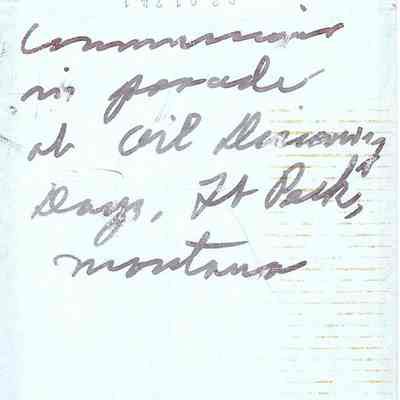 in parade
at Oil Discovery
Days, Ft Peck,
Montana